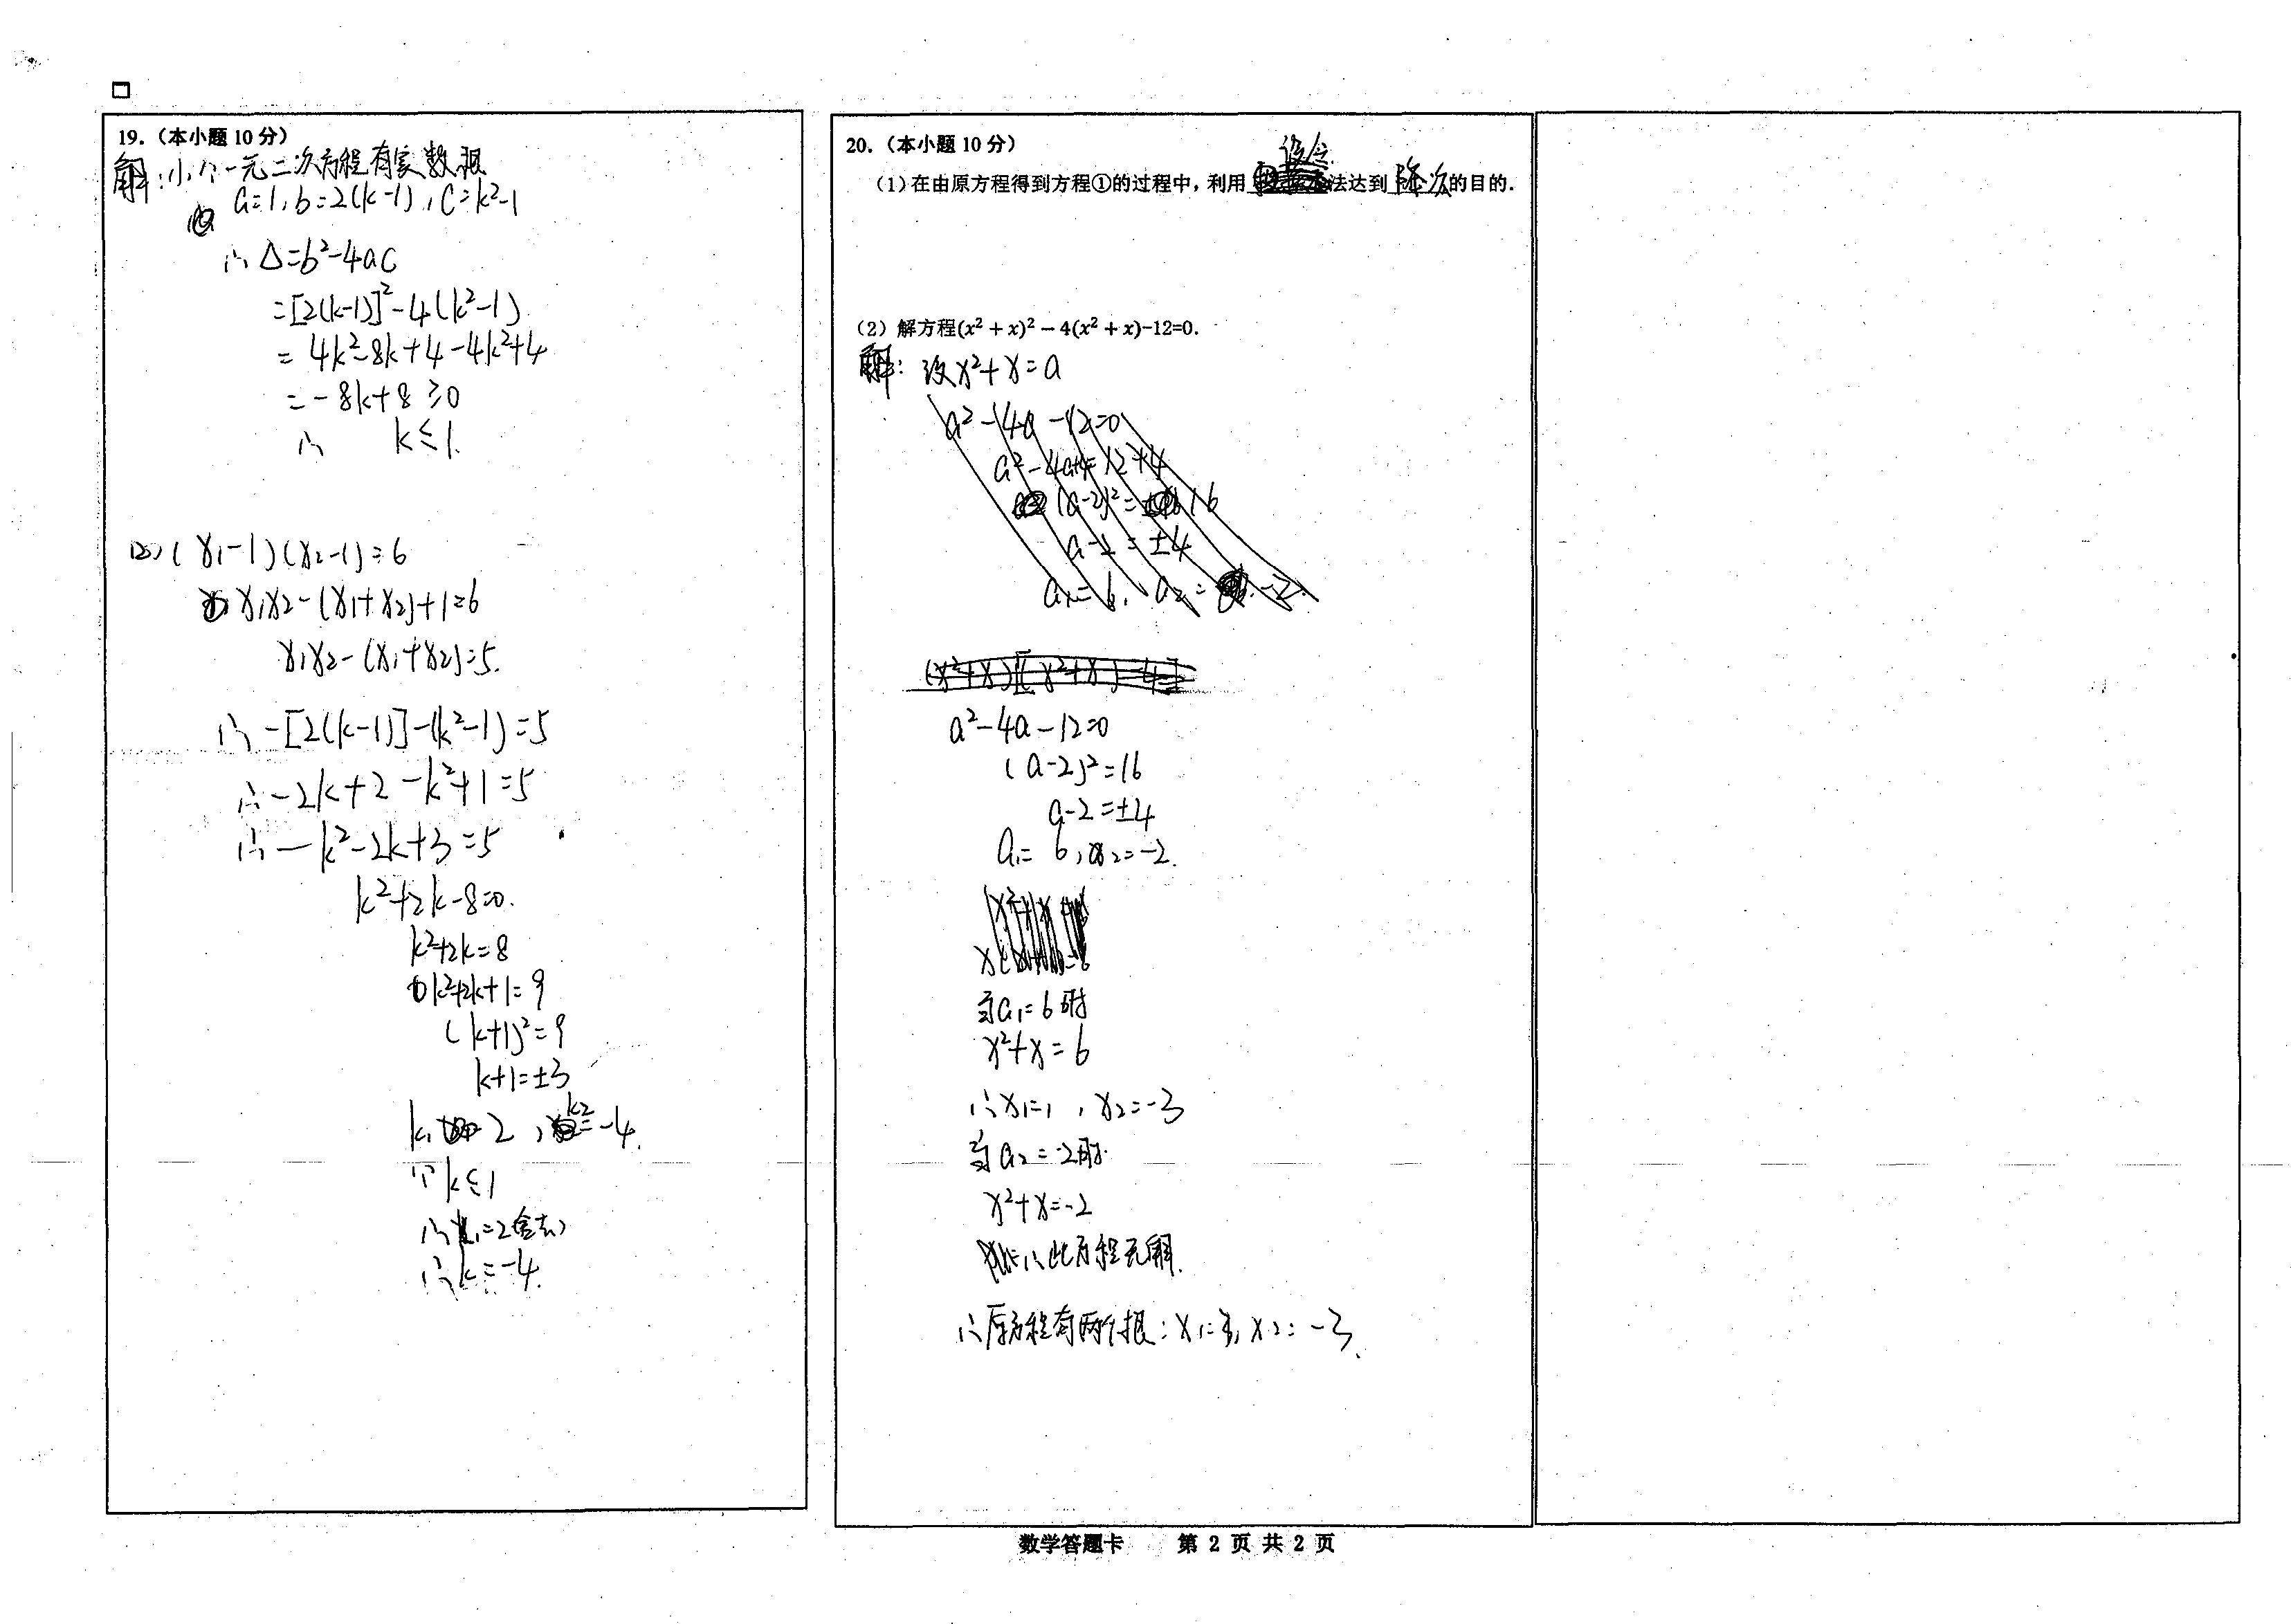 19.（本小题 10 分）
解：(1)∵一元二次方程有实数根
a=1,b=2(k-1),c=k²-1
∴Δ=b²-4ac
=[2(k-1)]²-4(k²-1)
=4k²-8k+4-4k²+4
=-8k+8≥0
∴ k≤1.
(2)(x₁-1)(x₂-1)=6
x₁x₂-(x₁+x₂)+1=6
x₁x₂-(x₁+x₂)=5.
∴-[2(k-1)]-(k²-1)=5
∴-2k+2-k²+1=5
∴-k²-2k+3=5
k²+2k-8=0.
k²+2k=8
k²+2k+1=9
(k+1)²=9
k+1=±3
k₁=2,k₂=-4.
∵k≤1
∴k₁=2(舍去)
∴k=-4.
20.（本小题 10 分）
设令
（1）在由原方程得到方程①的过程中，利用法达到 降次 的目的.
（2）解方程(x² + x)² − 4(x² + x)-12=0.
解：设x²+x=a
a²-4a-12=0
a²-4a+4=12+4
(a-2)²=16
a-2=±4
a₁=6, a₂=-2.
(x²+x)[(x²+x)-4]
a²-4a-12=0
(a-2)²=16
a-2=±4
a₁=6,a₂=-2.
当a₁=6时
x²+x=6
∴x₁=1,x₂=-3
当a₂=-2时
x²+x=-2
∴此方程无解.
∴原方程有两个根：x₁=,x₂=-3.
数学答题卡 第 2 页 共 2 页